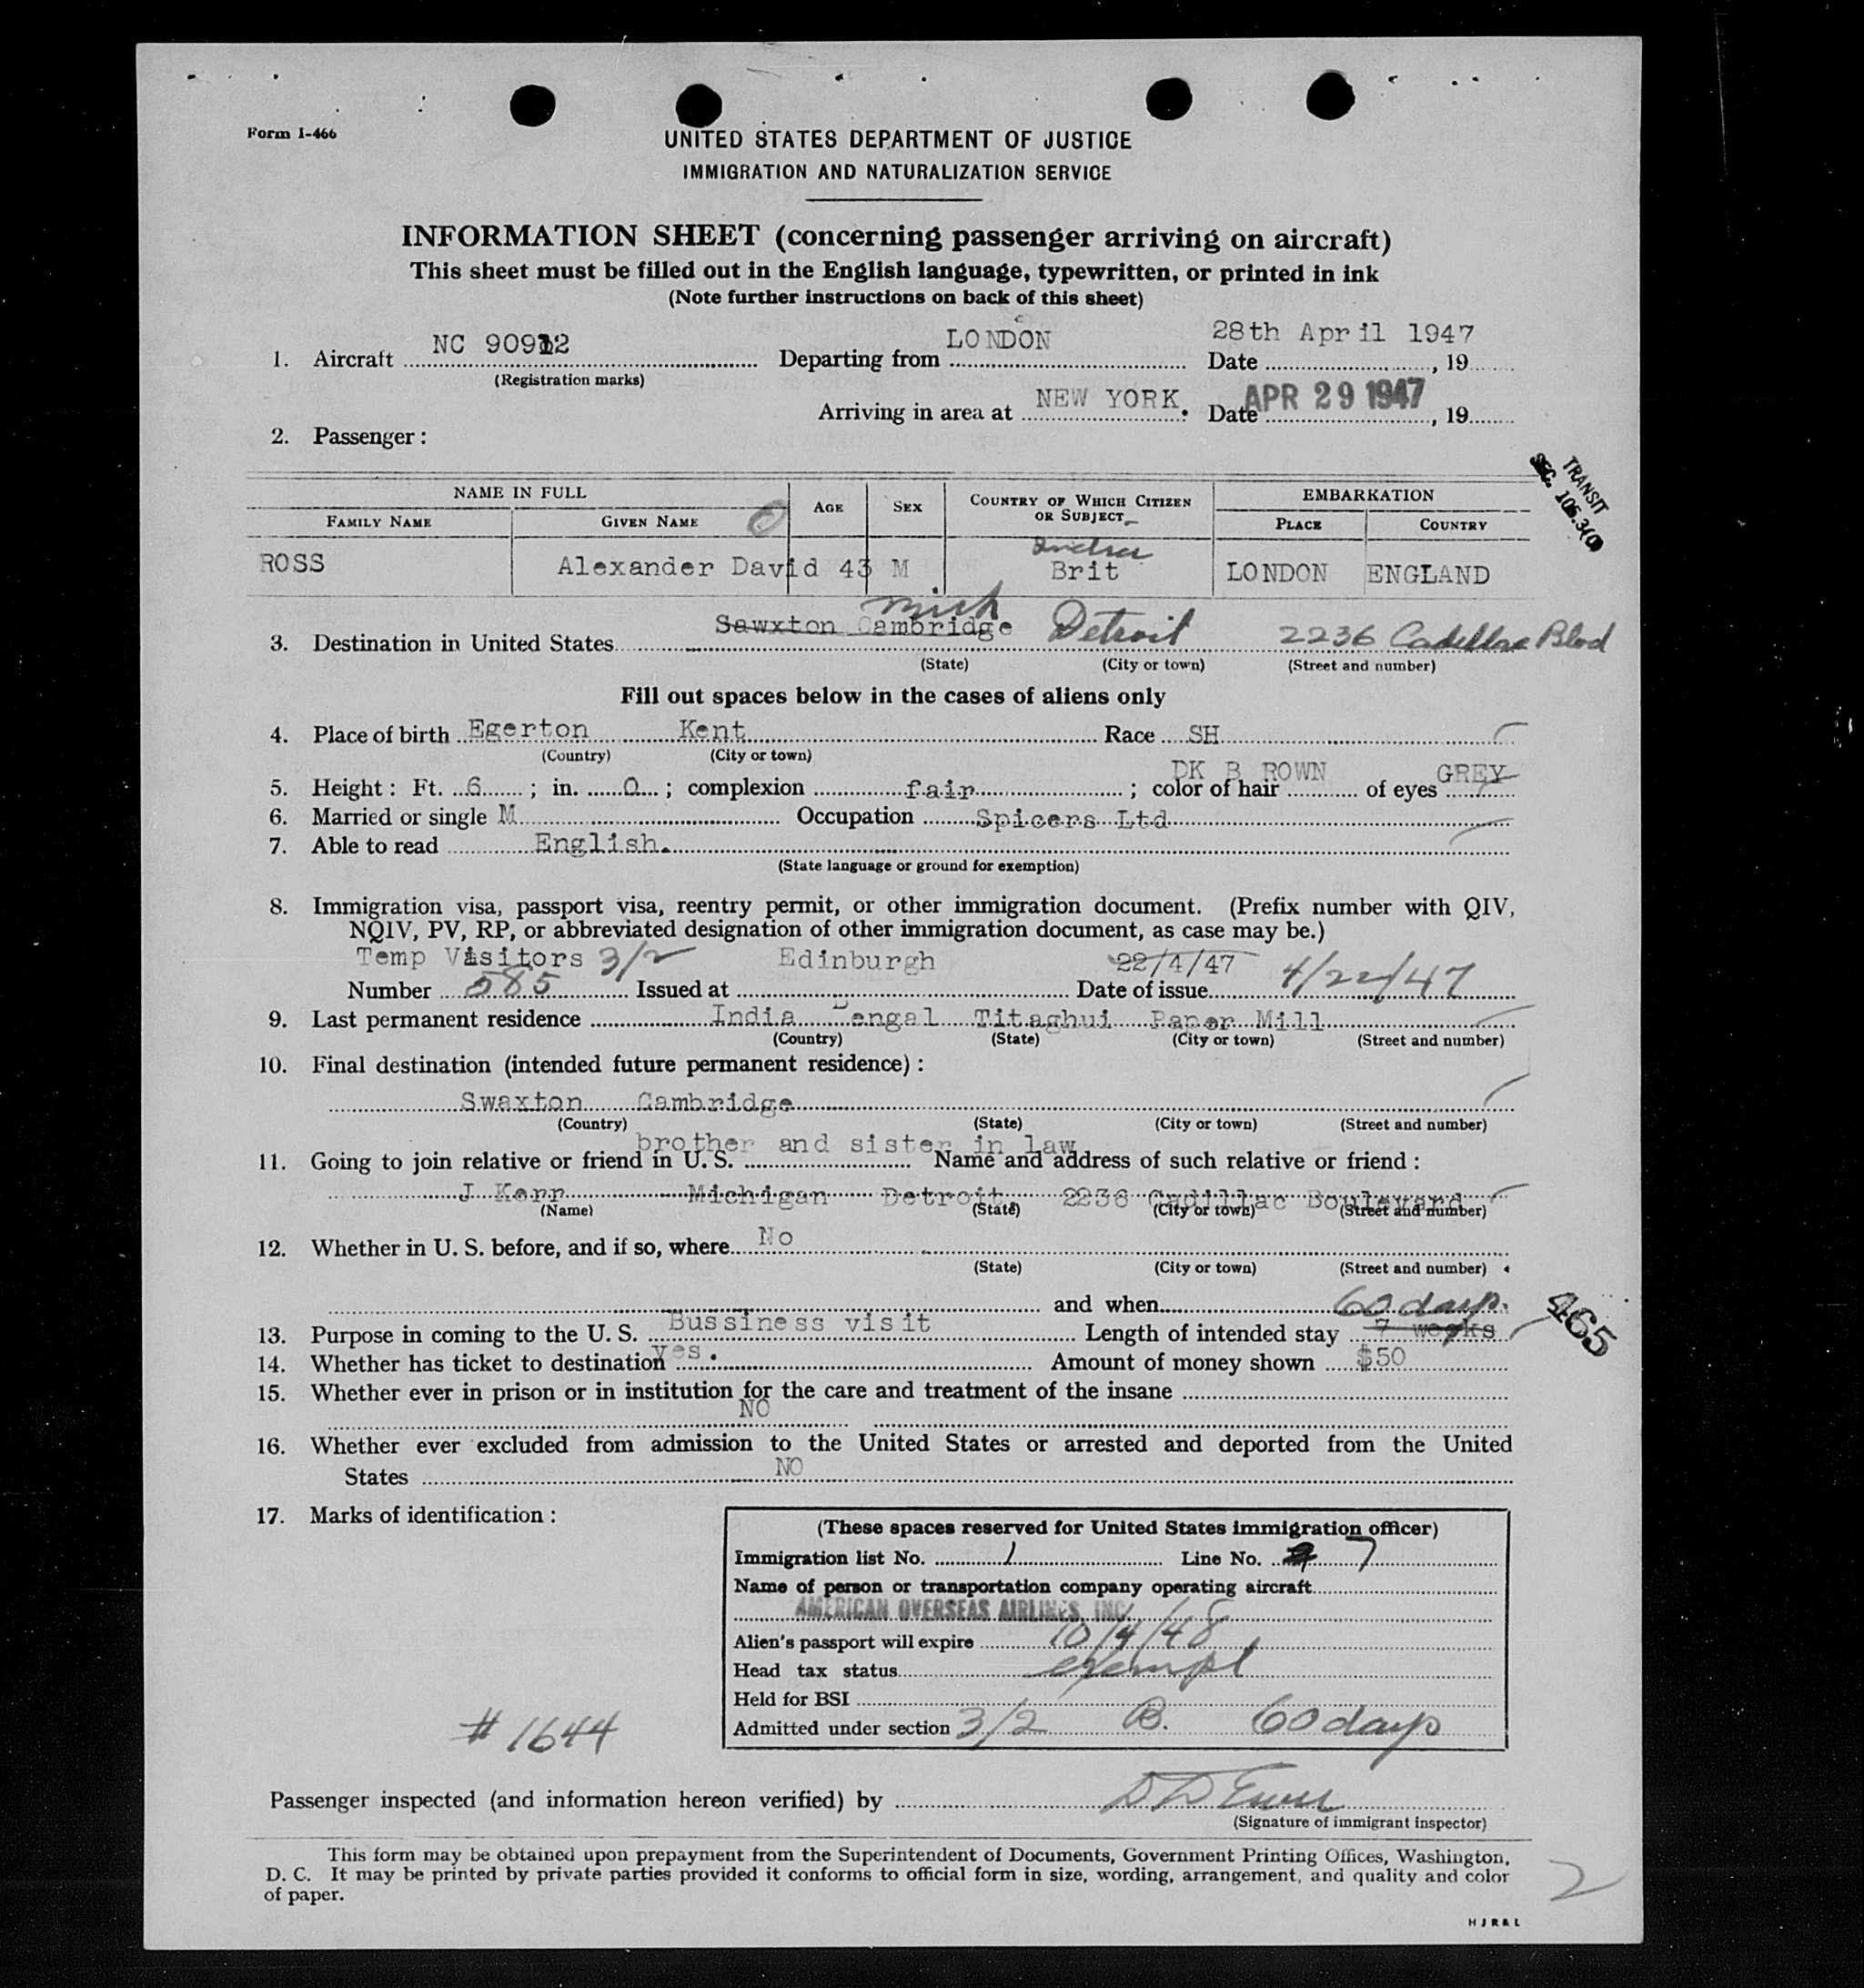 Form I-466
UNITED STATES DEPARTMENT OF JUSTICE
IMMIGRATION AND NATURALIZATION SERVICE
INFORMATION SHEET (concerning passenger arriving on aircraft)
This sheet must be filled out in the English language, typewritten, or printed in ink
(Note further instructions on back of this sheet)
1. Aircraft NC 90912 Departing from LONDON Date 28th April 1947, 19
(Registration marks)
Arriving in area at NEW YORK. Date APR 29 1947, 19
2. Passenger:
TRANSIT
SEC.
NAME IN FULL AGE SEX COUNTRY OF WHICH CITIZEN OR SUBJECT EMBARKATION
FAMILY NAME GIVEN NAME PLACE COUNTRY
ROSS Alexander David 43 M Brit LONDON ENGLAND
3. Destination in United States Sawxton Cambridge Mich Detroit 2236 Cadillac Blvd
(State) (City or town) (Street and number)
Fill out spaces below in the cases of aliens only
4. Place of birth Egerton Kent Race SH
(Country) (City or town)
5. Height: Ft. 6; in. 0; complexion fair; color of hair DK B ROWN of eyes GREY
6. Married or single M Occupation Spicers Ltd
7. Able to read English.
(State language or ground for exemption)
8. Immigration visa, passport visa, reentry permit, or other immigration document. (Prefix number with QIV,
NQIV, PV, RP, or abbreviated designation of other immigration document, as case may be.)
Temp Visitors 3/2 Edinburgh 22/4/47 4/22/47
Number 585 Issued at Date of issue
9. Last permanent residence India Bengal Titaghui Paper Mill
(Country) (State) (City or town) (Street and number)
10. Final destination (intended future permanent residence):
Swaxton Cambridge
(Country) (State) (City or town) (Street and number)
brother and sister in law
11. Going to join relative or friend in U. S. Name and address of such relative or friend:
J Kerr Michigan Detroit. 2236 Cadillac Boulevard
(Name) (State) (City or town) (Street and number)
12. Whether in U. S. before, and if so, where No
(State) (City or town) (Street and number)
and when 60 days.
13. Purpose in coming to the U. S. Bussiness visit Length of intended stay 7 weeks
465
14. Whether has ticket to destination yes. Amount of money shown $50
15. Whether ever in prison or in institution for the care and treatment of the insane
NO
16. Whether ever excluded from admission to the United States or arrested and deported from the United
States NO
17. Marks of identification:
(These spaces reserved for United States immigration officer)
Immigration list No. 1 Line No. 7
Name of person or transportation company operating aircraft
AMERICAN OVERSEAS AIRLINES, INC.
Alien's passport will expire 10/4/48
Head tax status exempt
Held for BSI
Admitted under section 3/2 B. 60 days
# 1644
Passenger inspected (and information hereon verified) by
(Signature of immigrant inspector)
This form may be obtained upon prepayment from the Superintendent of Documents, Government Printing Offices, Washington,
D. C. It may be printed by private parties provided it conforms to official form in size, wording, arrangement, and quality and color
of paper.
2
H J R & L